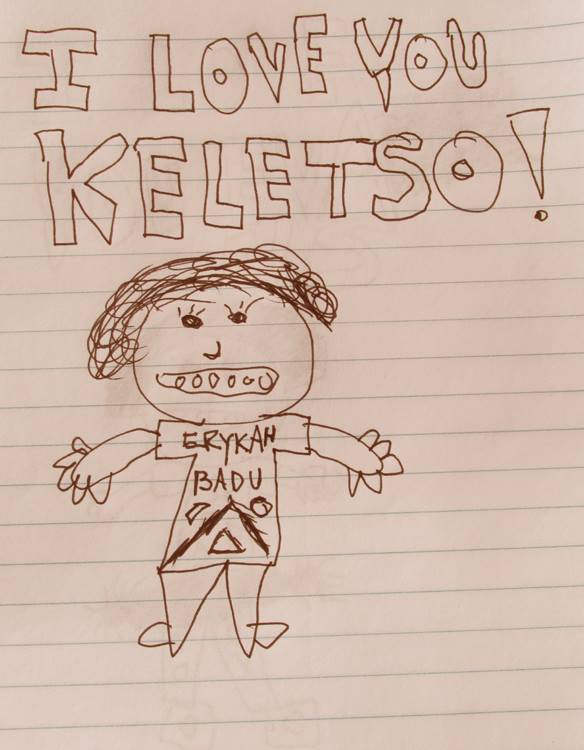 I LOVE YOU
KELETSO!
ERYKAH
BADU